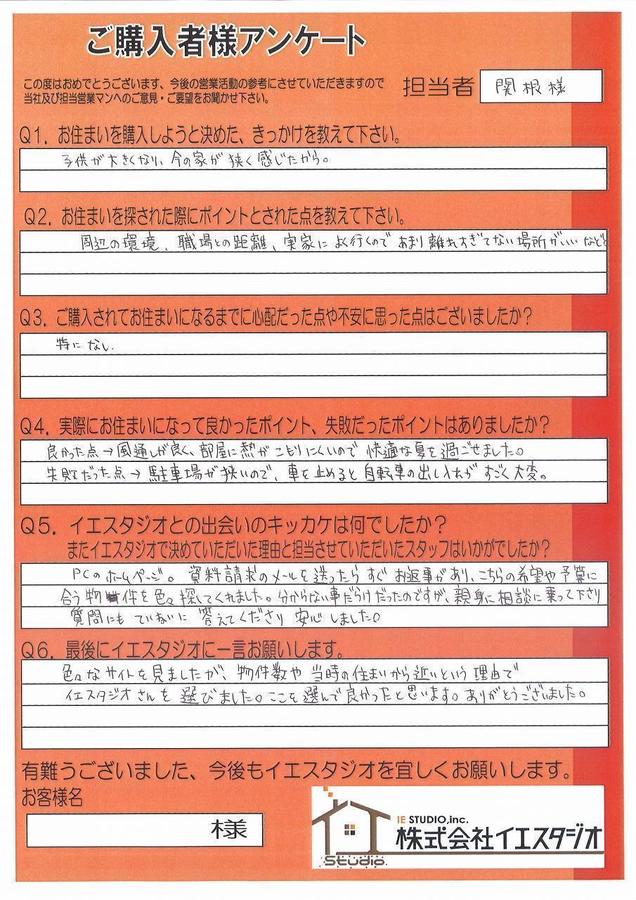 ご購入者様アンケート
この度はおめでとうございます、今後の営業活動の参考にさせていただきますので
当社及び担当営業マンへのご意見・ご要望をお聞かせ下さい。
担当者 関根様
Q1. お住まいを購入しようと決めた、きっかけを教えて下さい。
子供が大きくなり、今の家が狭く感じたから。
Q2. お住まいを探された際にポイントとされた点を教えて下さい。
周辺の環境、職場との距離、実家によく行くのであまり離れすぎてない場所がいいなど
Q3. ご購入されてお住まいになるまでに心配だった点や不安に思った点はございましたか?
特になし.
Q4. 実際にお住まいになって良かったポイント、失敗だったポイントはありましたか?
良かった点→風通しが良く、部屋に熱がこもりにくいので快適な夏を過ごせました。
失敗だった点→駐車場が狭いので、車を止めると自転車の出し入れがすごく大変。
Q5. イエスタジオとの出会いのキッカケは何でしたか?
またイエスタジオで決めていただいた理由と担当させていただいたスタッフはいかがでしたか?
PCのホームページ。資料請求のメールを送ったらすぐお返事があり、こちらの希望や予算に
合う物件を色々探してくれました。分からない事だらけだったのですが、親身に相談に乗って下さり
質問にもていねいに答えてくださり安心しました。
Q6. 最後にイエスタジオに一言お願いします。
色々なサイトを見ましたが、物件数や当時の住まいから近いという理由で
イエスタジオさんを選びました。ここを選んで良かったと思います。ありがとうございました。
有難うございました、今後もイエスタジオを宜しくお願いします。
お客様名
様
IE STUDIO,inc.
株式会社イエスタジオ
Studio